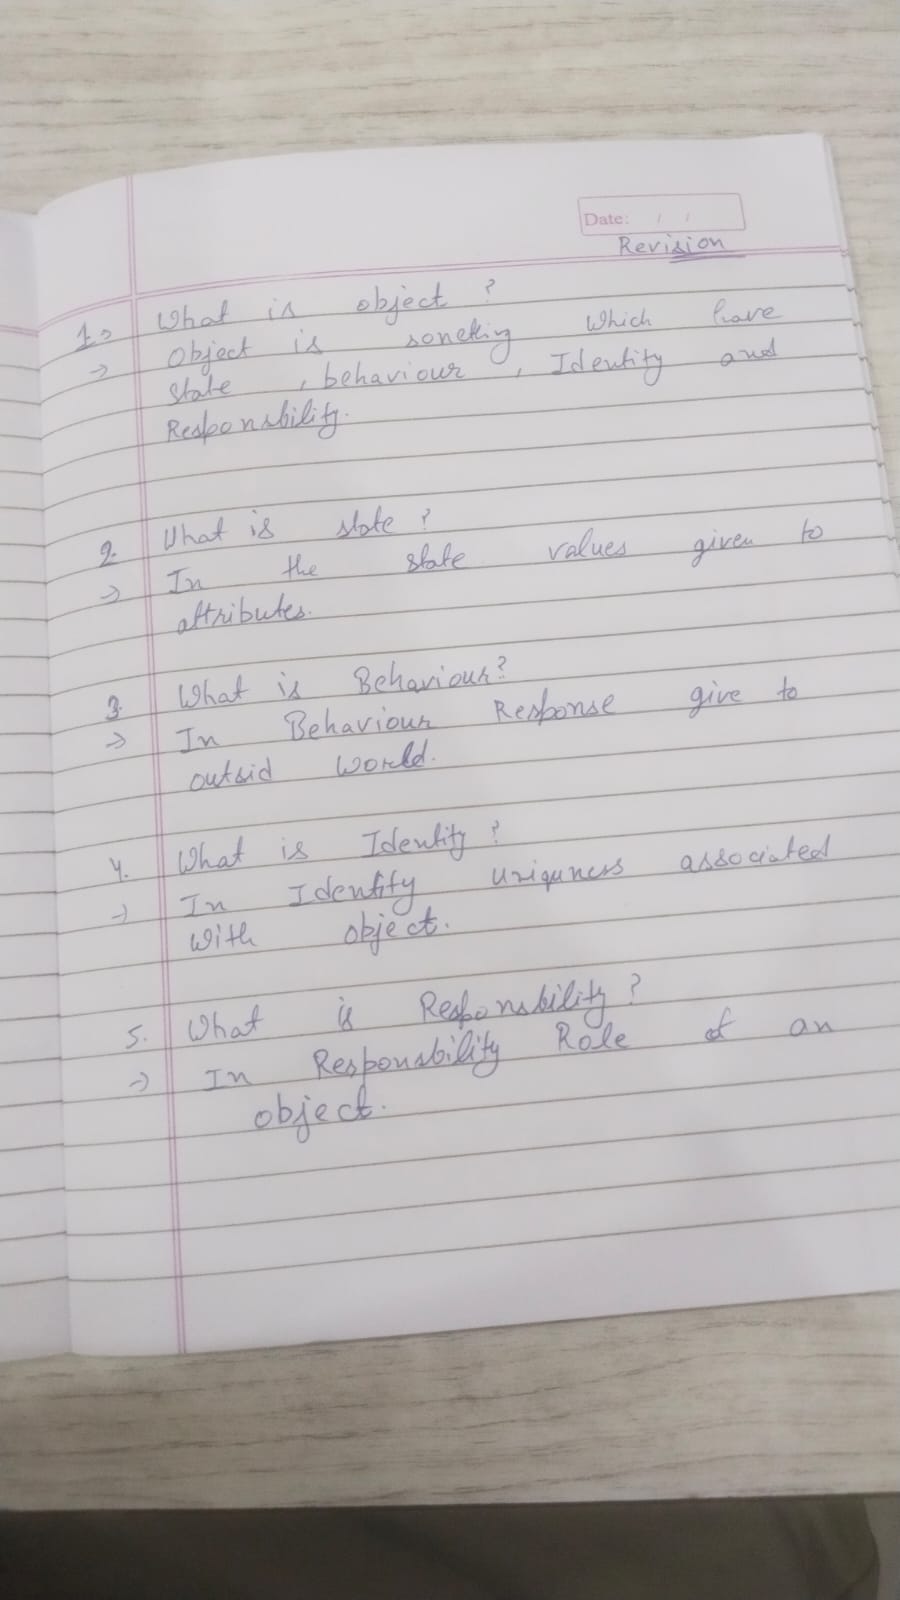 Date: / /
Revision
1.> What is object ?
-> Object is someting which have
state , behaviour , Identity and
Responsbility.
2. What is state ?
-> In the state values given to
attributes.
3. What is Behaviour?
-> In Behaviour Response give to
outsid world.
4. What is Identity ?
-> In Identity uniquness associated
with object.
5. What is Responsbility ?
-> In Responsbility Role of an
object.